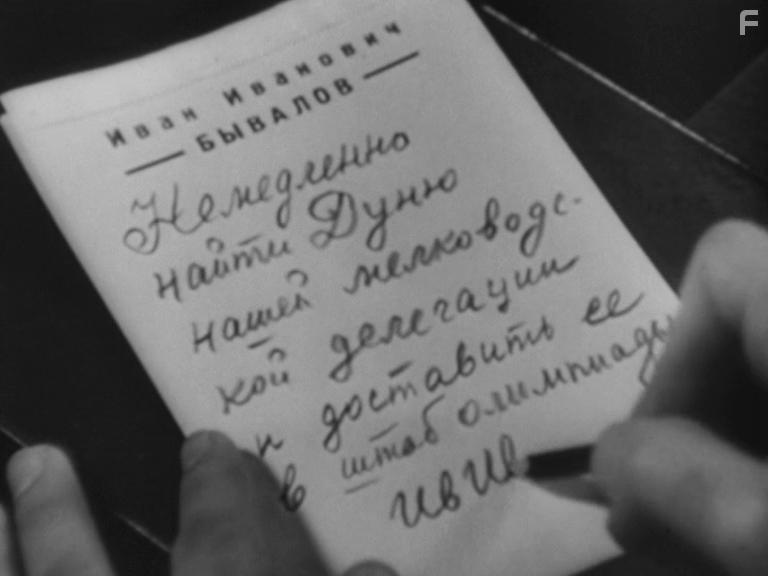 F
Иван Иванович
БЫВАЛОВ
Немедленно
найти Дуню
нашей мелководс-
кой делегации
и доставить ее
в штаб олимпиады
Ив Ив